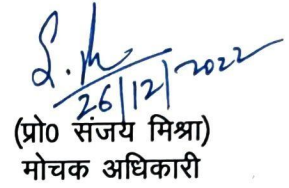 26/12/2022
(प्रो0 संजय मिश्रा)
मोचक अधिकारी